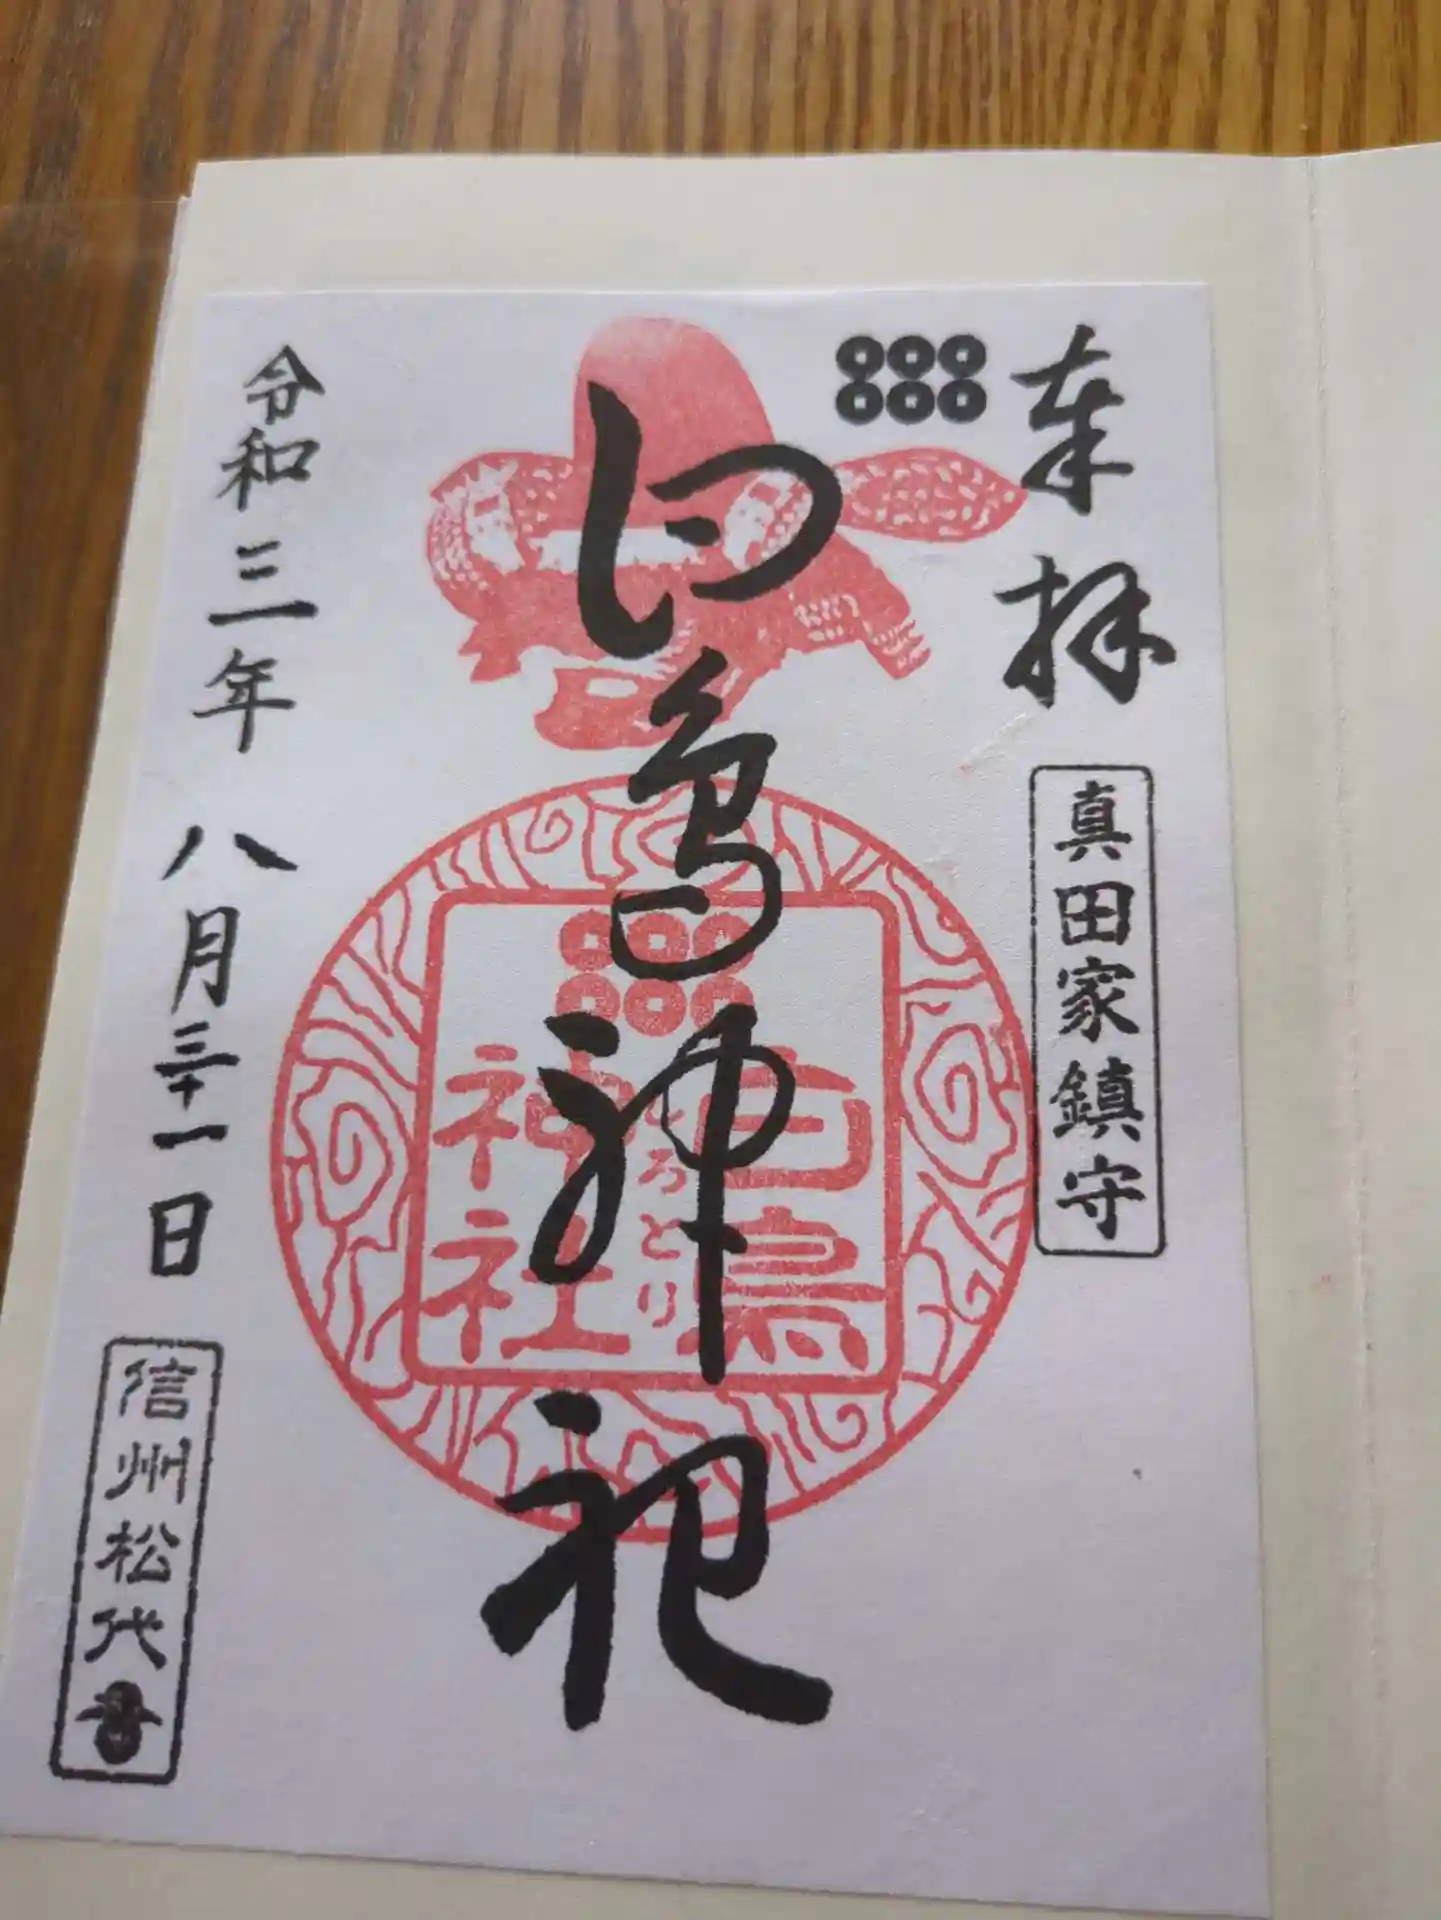 奉拝
真田家鎮守
白鳥神社
白鳥
しろとり
神社
令和三年八月三十一日
信州松代